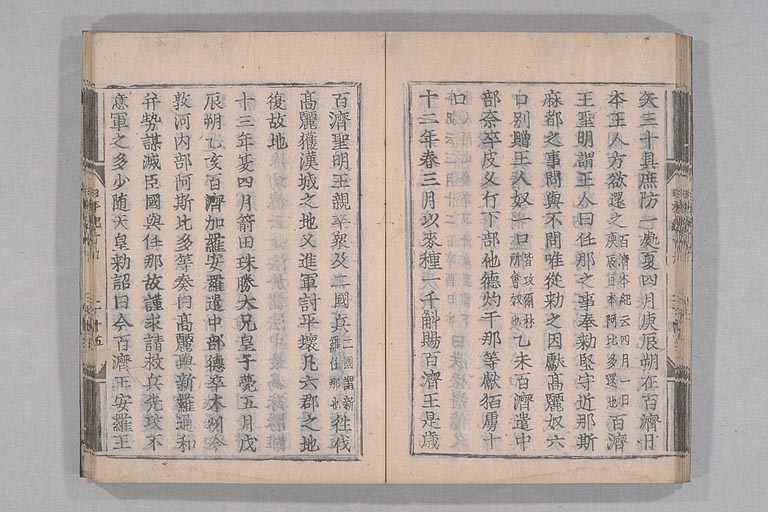 矢三十具庶防一處夏四月庚辰朔在百濟日
本王人方欲還之百濟本紀云四月一日庚辰日本阿比多還也百濟
王聖明謂王人曰任那之事奉勅堅守近那斯
麻都之事問與不問唯從勅之因獻高麗奴六
口別贈王人奴一口皆攻爾林所禽奴也乙未百濟遣中
部奈率皮久斤下部他德灼干那等獻狛虜十
口
十二年春三月以麥種一千斛賜百濟王是歲
百濟聖明王親率衆及二國兵二國謂新羅任那也往伐
高麗獲漢城之地又進軍討平壤凡六郡之地
復故地
十三年夏四月箭田珠勝大兄皇子薨五月戊
辰朔乙亥百濟加羅安羅遣中部德率木刕今
敦河內部阿斯比多等奏曰高麗與新羅通和
并勢謀滅臣國與任那故謹求請救兵先攻不
意軍之多少随天皇勅詔曰今百濟王安羅王